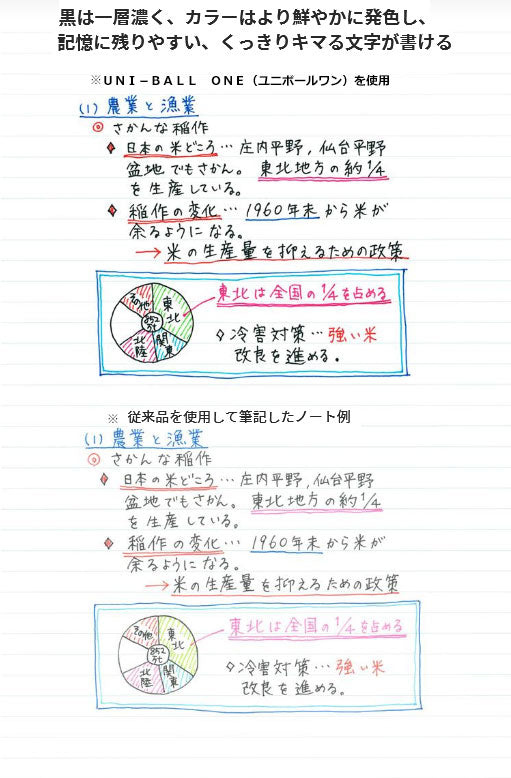 黒は一層濃く、カラーはより鮮やかに発色し、
記憶に残りやすい、くっきりキマる文字が書ける
※UNI－BALL　ONE（ユニボールワン）を使用
(1) 農業と漁業
◎ さかんな稲作
◆ 日本の米どころ… 庄内平野, 仙台平野
盆地でもさかん。 東北地方の約1/4
を生産している。
◆ 稲作の変化… 1960年末から米が
余るようになる。
→ 米の生産量を抑えるための政策
その他
東北
852万t
北陸
関東
東北は全国の1/4を占める
◇冷害対策…強い米
改良を進める。
※ 従来品を使用して筆記したノート例
(1) 農業と漁業
◎ さかんな稲作
◆ 日本の米どころ… 庄内平野, 仙台平野
盆地でもさかん。 東北地方の約1/4
を生産している。
◆ 稲作の変化… 1960年末から米が
余るようになる。
→米の生産量を抑えるための政策
その他
東北
852万t
北陸
関東
東北は全国の1/4を占める
◇冷害対策…強い米
改良を進める。